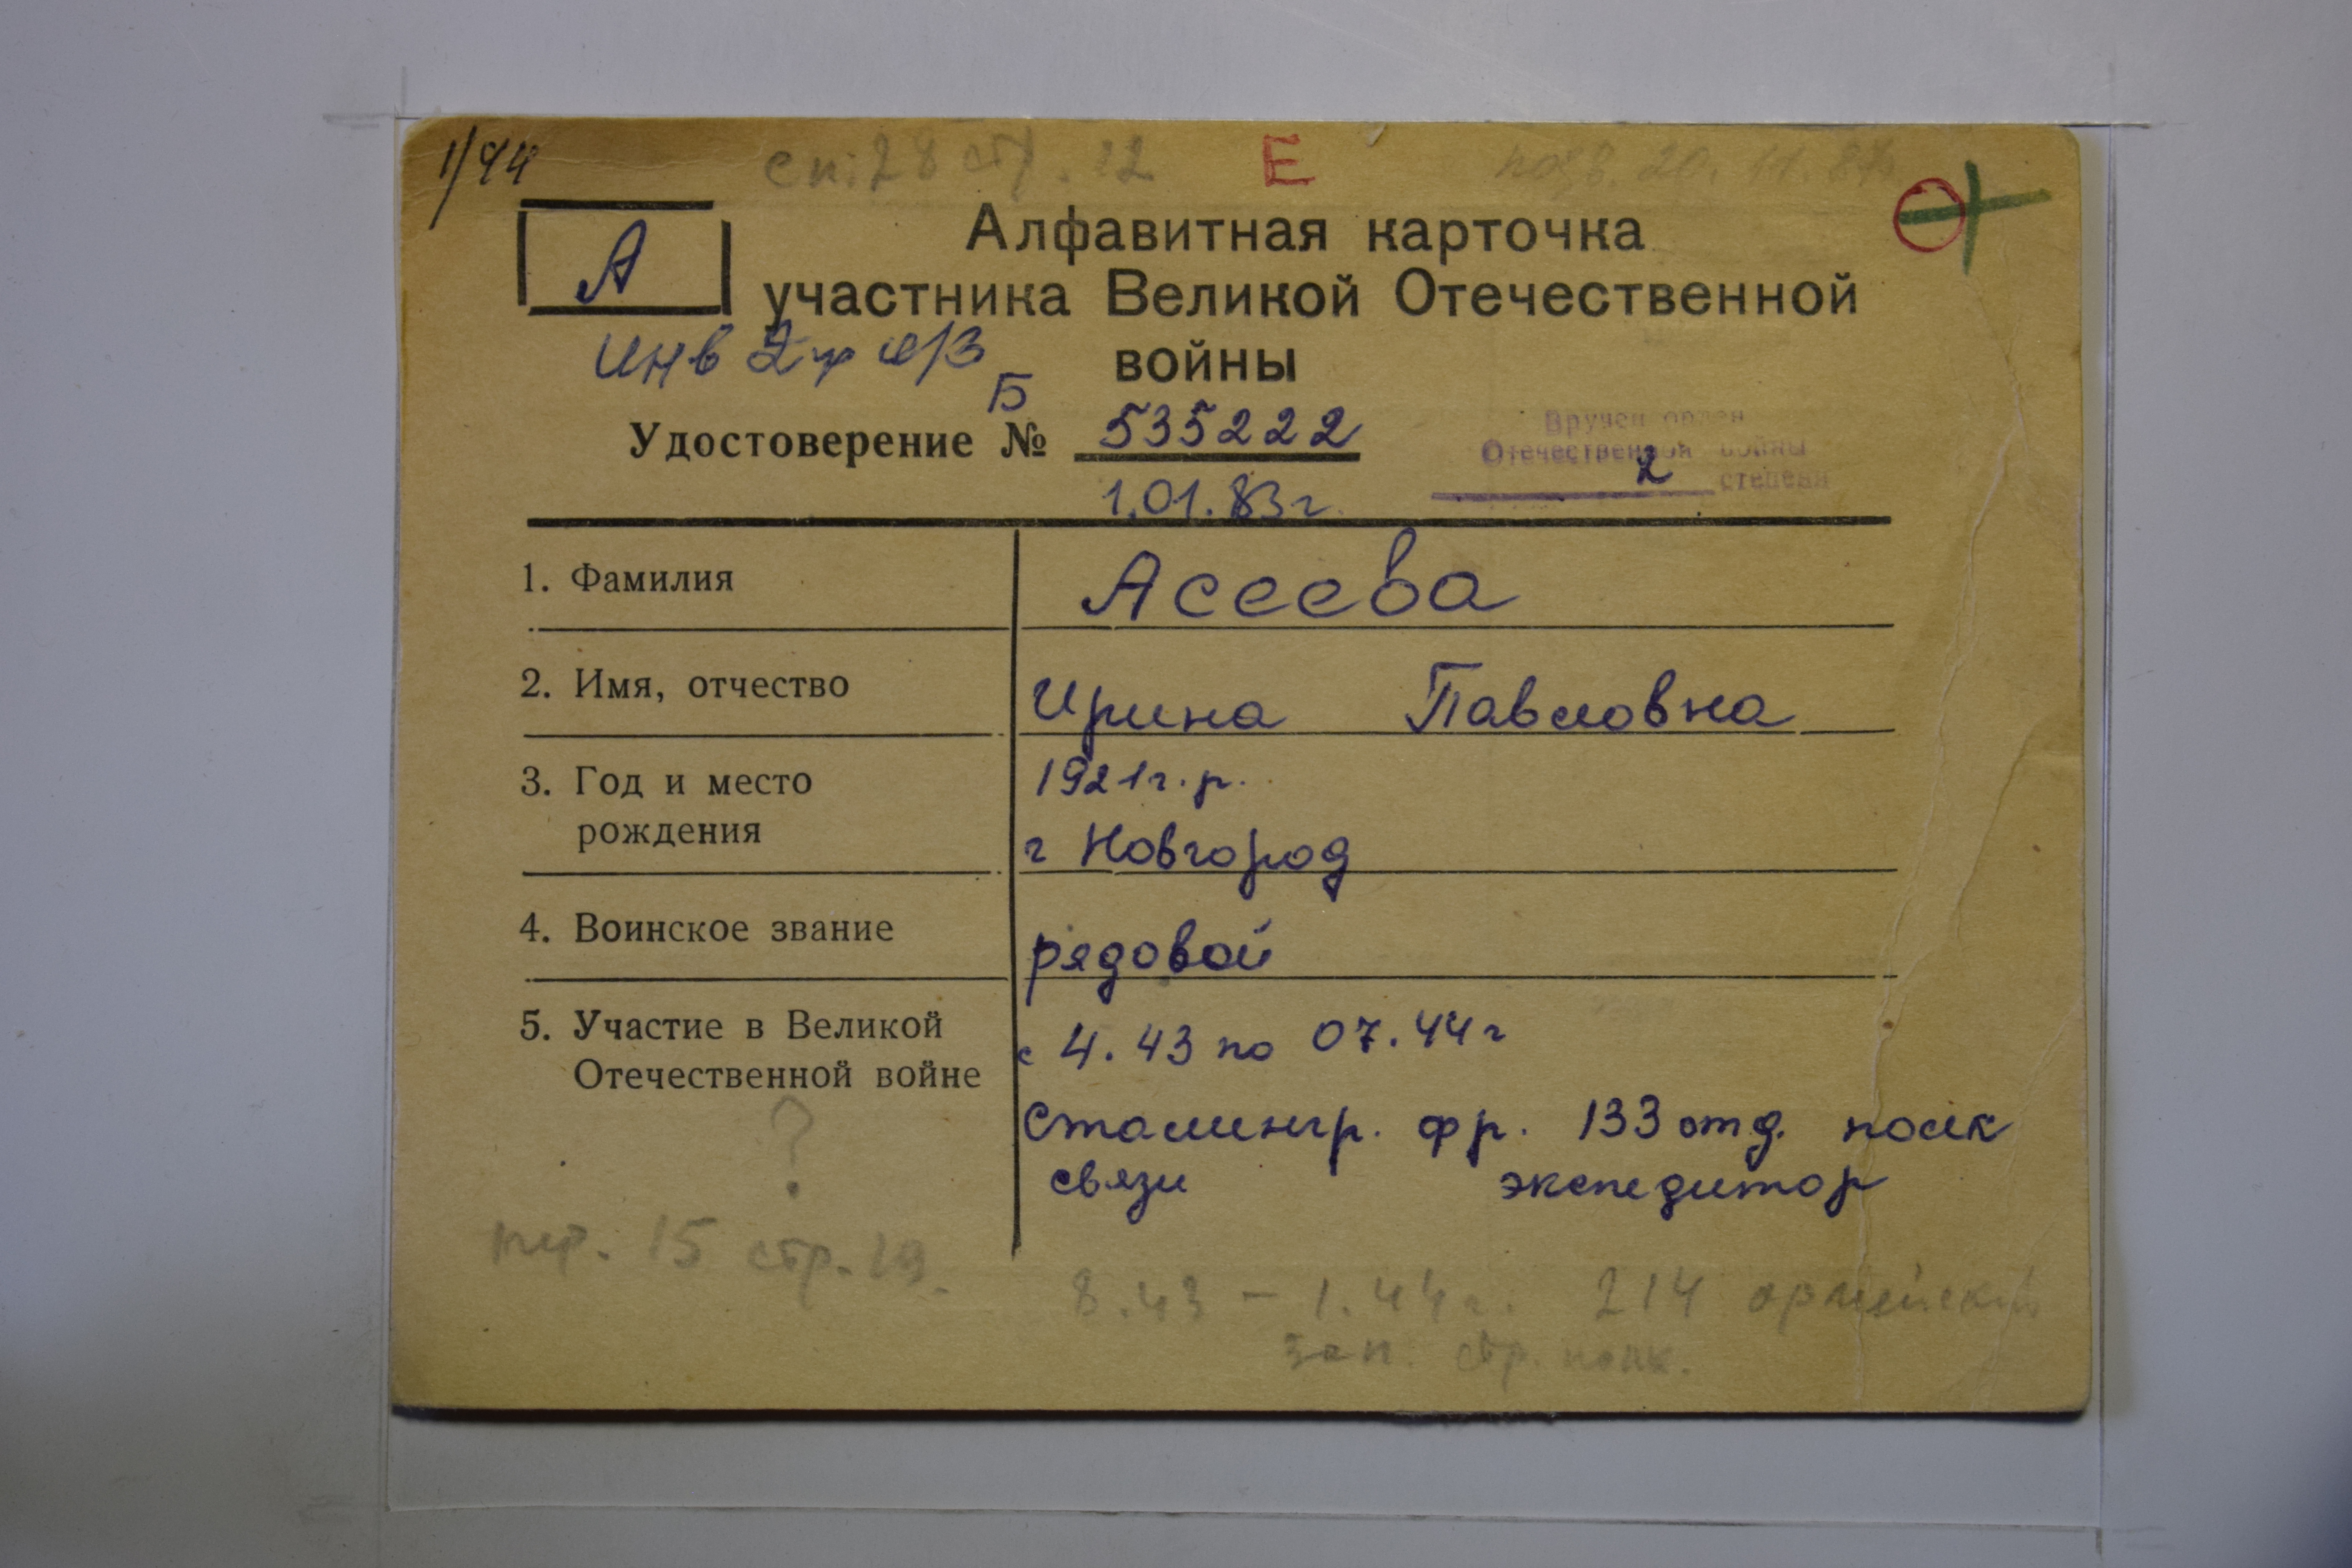 1/94
сп. 28 стр. 12
Е
20.11.87
А
Алфавитная карточка
участника Великой Отечественной
войны
инв 2 гр
Б
Удостоверение № 535222
1.01.83 г.
Вручен орден
Отечественной войны
2 степени
1. Фамилия Асеева
2. Имя, отчество Ирина Павловна
3. Год и место рождения 1921 г.р.
г Новгород
4. Воинское звание рядовой
5. Участие в Великой Отечественной войне с 4.43 по 07.44 г
Сталингр. фр. 133 отд. полк
связи экспедитор
?
15 стр. 19.
8.43 – 1.44 г. 214 армейский
зап. стр. полк.